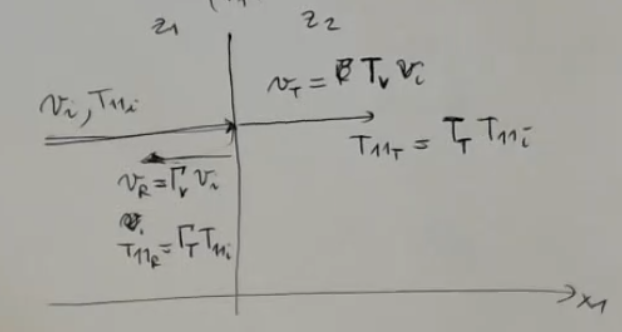 z₁ z₂
v_T = T_v v_i
v_i, T₁₁ᵢ
T₁₁_T = T_T T₁₁ᵢ
v_R = Γ_v v_i
T₁₁_R = Γ_T T₁₁ᵢ
x₁